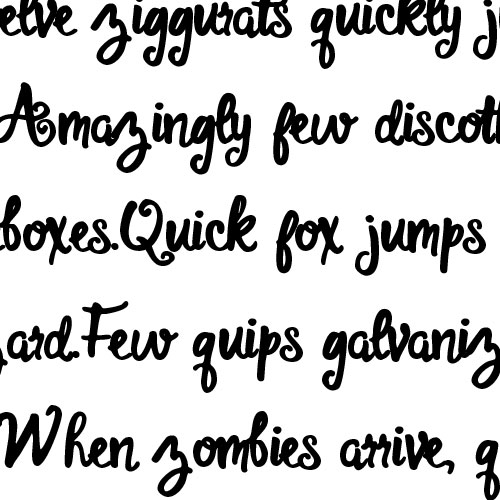 elve ziggurats quickly j
Amazingly few discoth
boxes.Quick fox jumps
ard.Few quips galvaniz
When zombies arrive, q